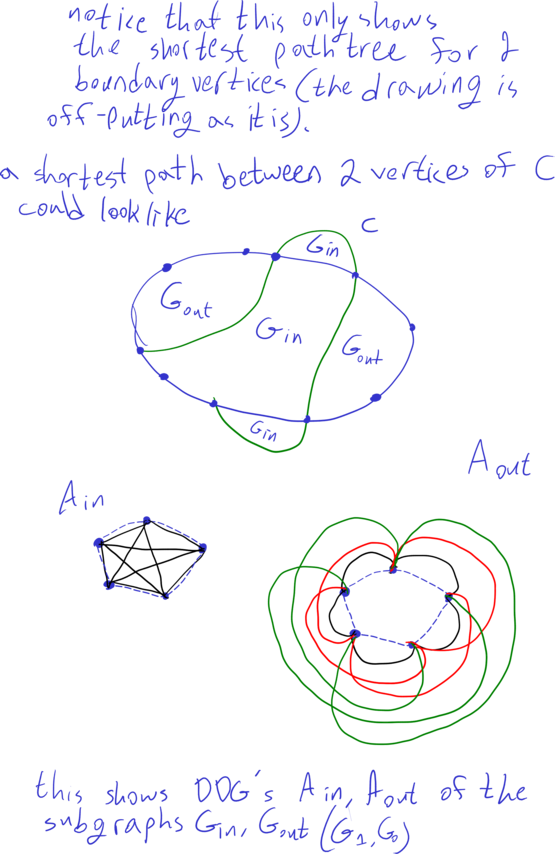 notice that this only shows
the shortest path tree for 2
boundary vertices (the drawing is
off-putting as it is).
a shortest path between 2 vertices of C
could look like
C
Gin
Gout
Gin
Gout
Gin
Aout
Ain
this shows DDG's Ain, Aout of the
subgraphs Gin, Gout (G1, G0)